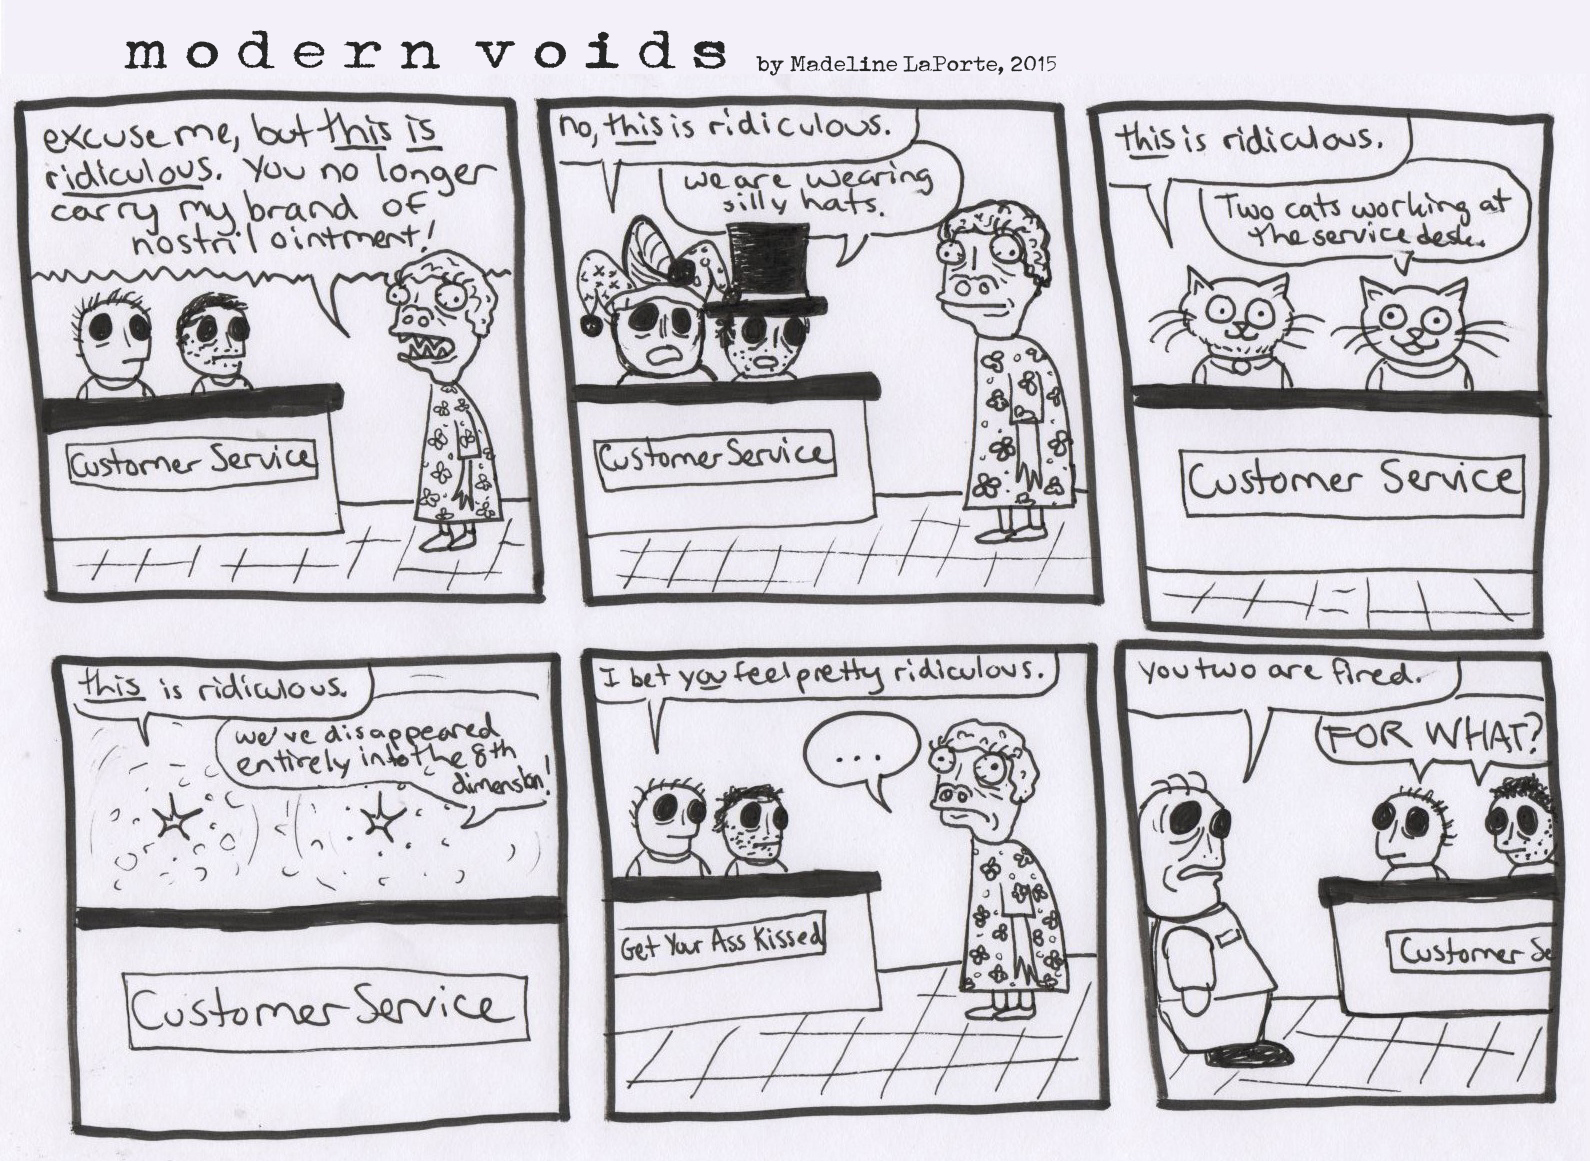 modern voids by Madeline LaPorte, 2015
excuse me, but this is
ridiculous. You no longer
carry my brand of
nostril ointment!
Customer Service
no, this is ridiculous.
we are wearing
silly hats.
Customer Service
this is ridiculous.
Two cats working at
the service desk.
Customer Service
this is ridiculous.
we've disappeared
entirely into the 8th
dimension!
Customer Service
I bet you feel pretty ridiculous.
...
Get Your Ass Kissed
you two are fired.
FOR WHAT?
Customer Se